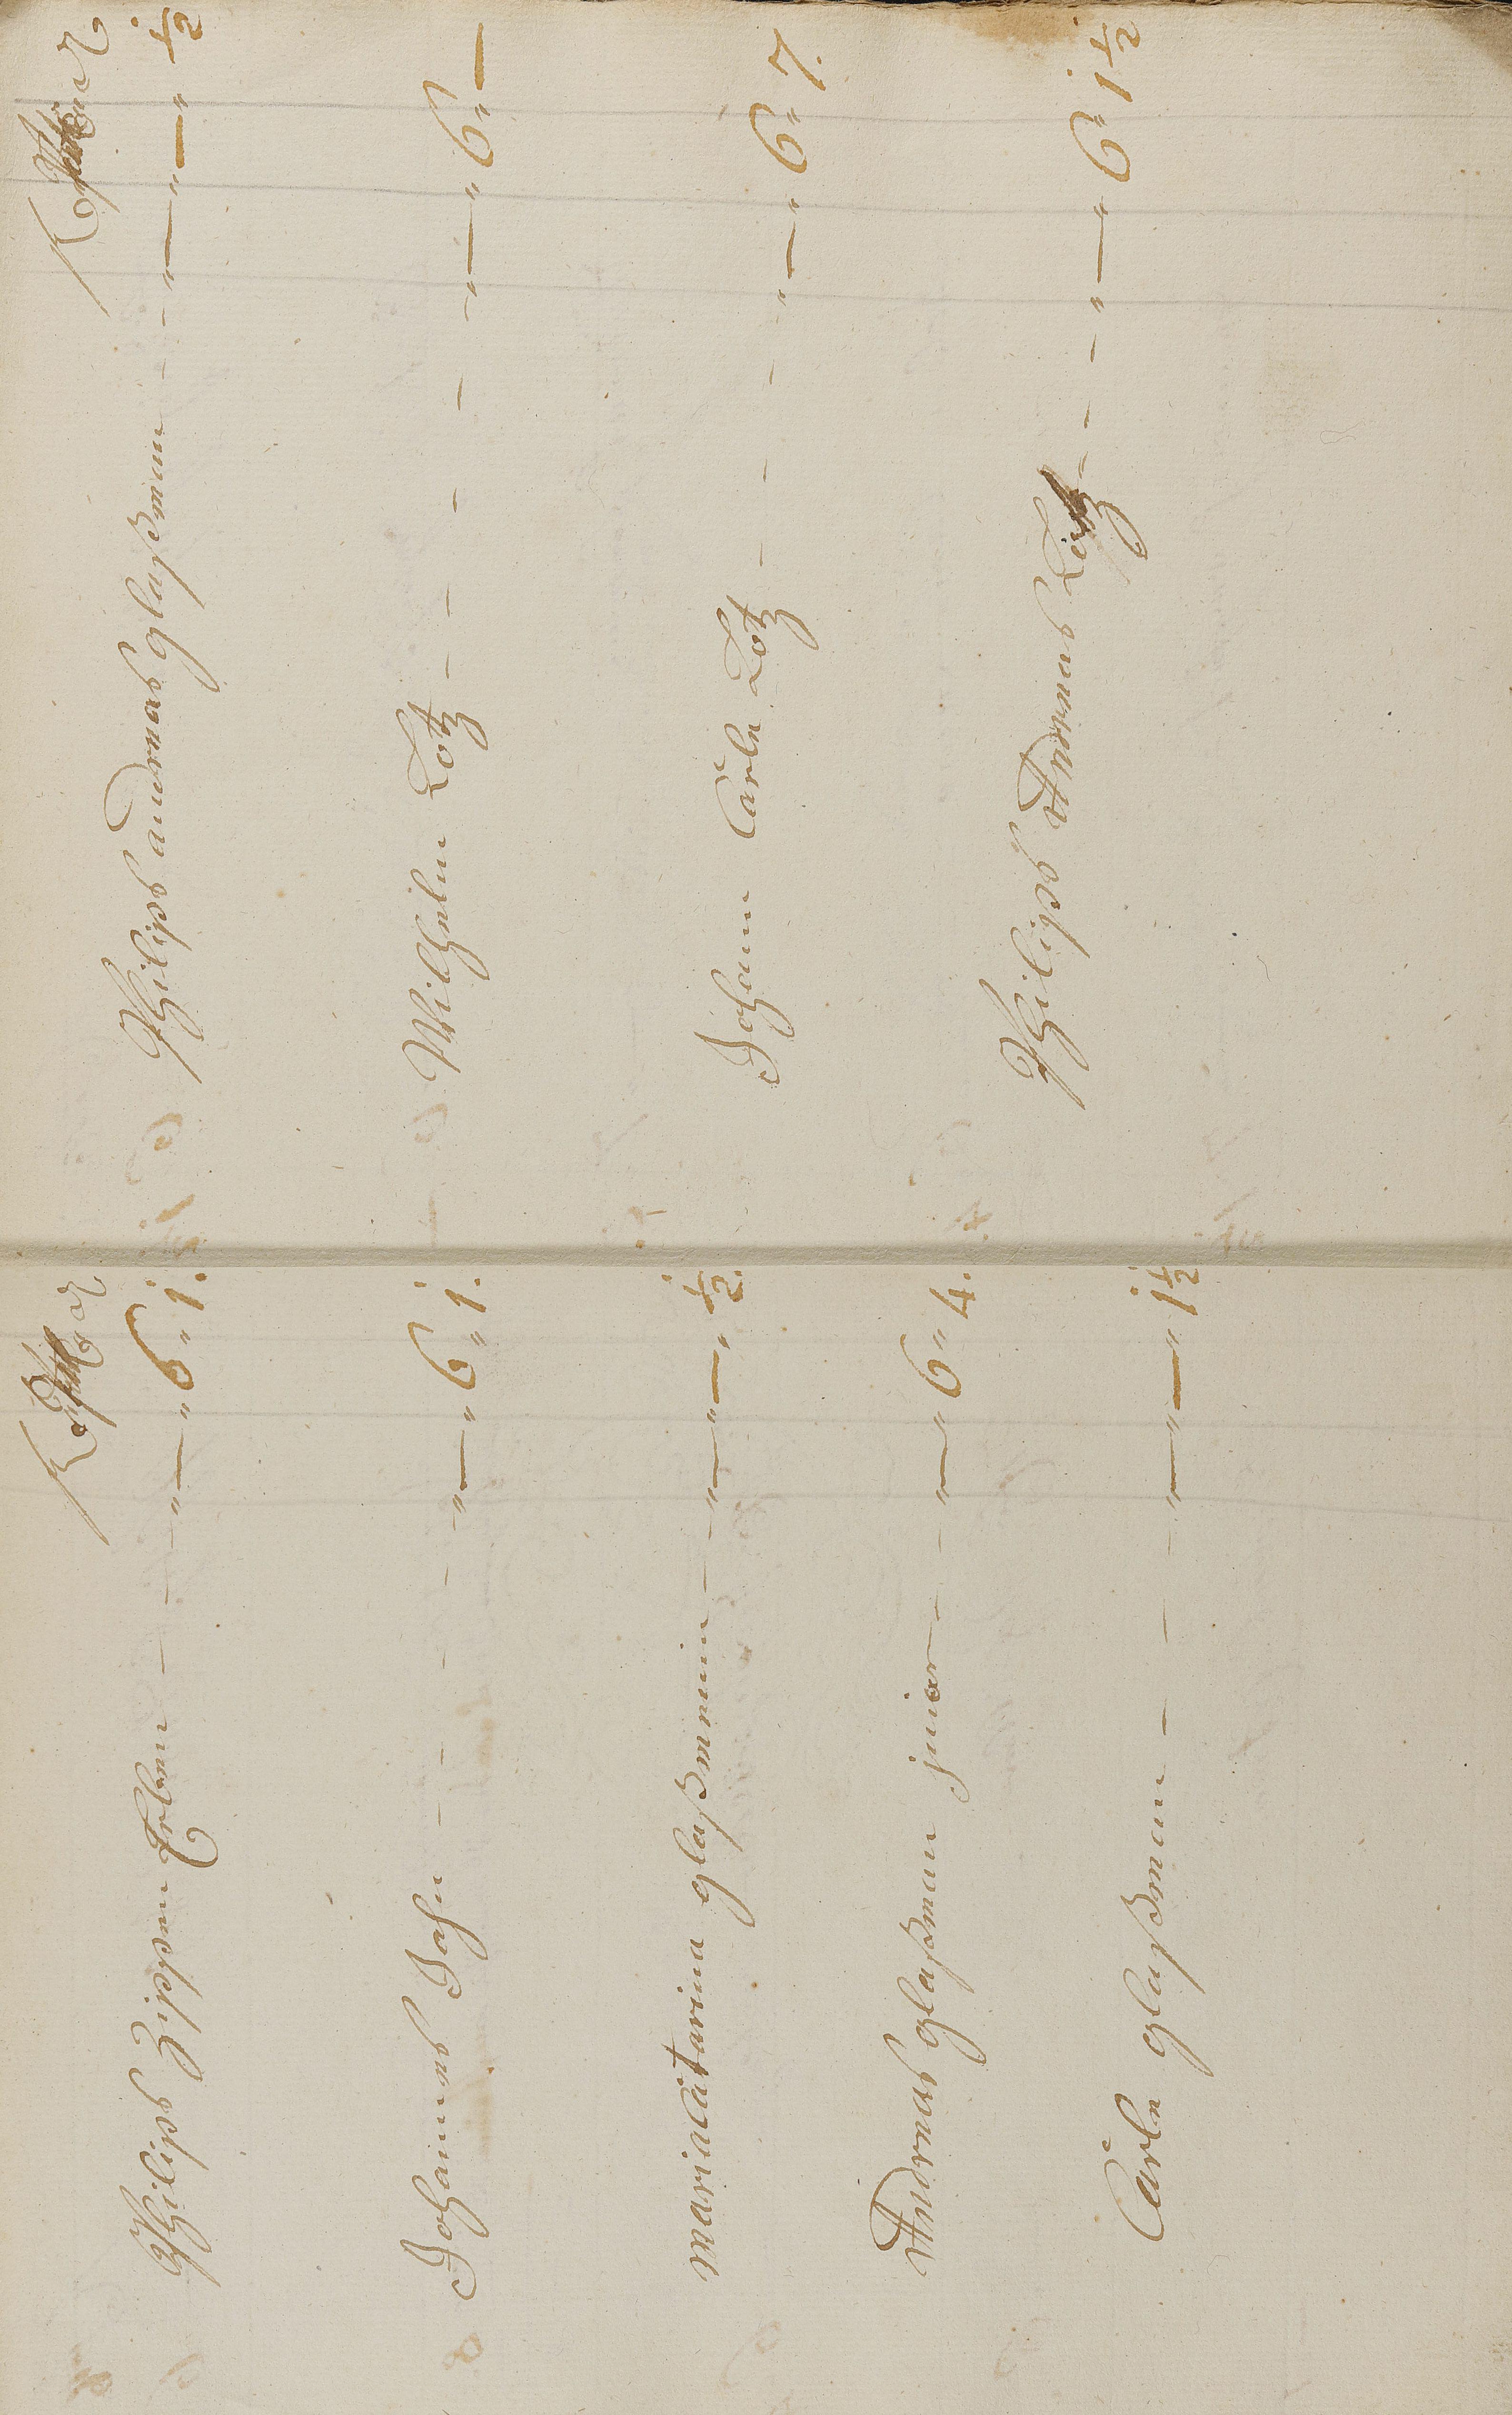 Philips Zipsen Erben - - - " — " 6 " 1.
Johannes Jahn - - - - - " — " 6 " 1.
maria Catarina glaßmenin - - " — " — " ½.
Andreas glaßman junior - - " — " 6 " 4.
Carle glaßman - - - " — " — " 1½
Philips andreas glaßman - - " — " — " ½
Wilhelm Lotz - - - - - " — " 6 " —
Johann Carle Lotz - - - - " — " 6 " 7.
Philips Andreas Lotz - - - " — " 6 " 1½